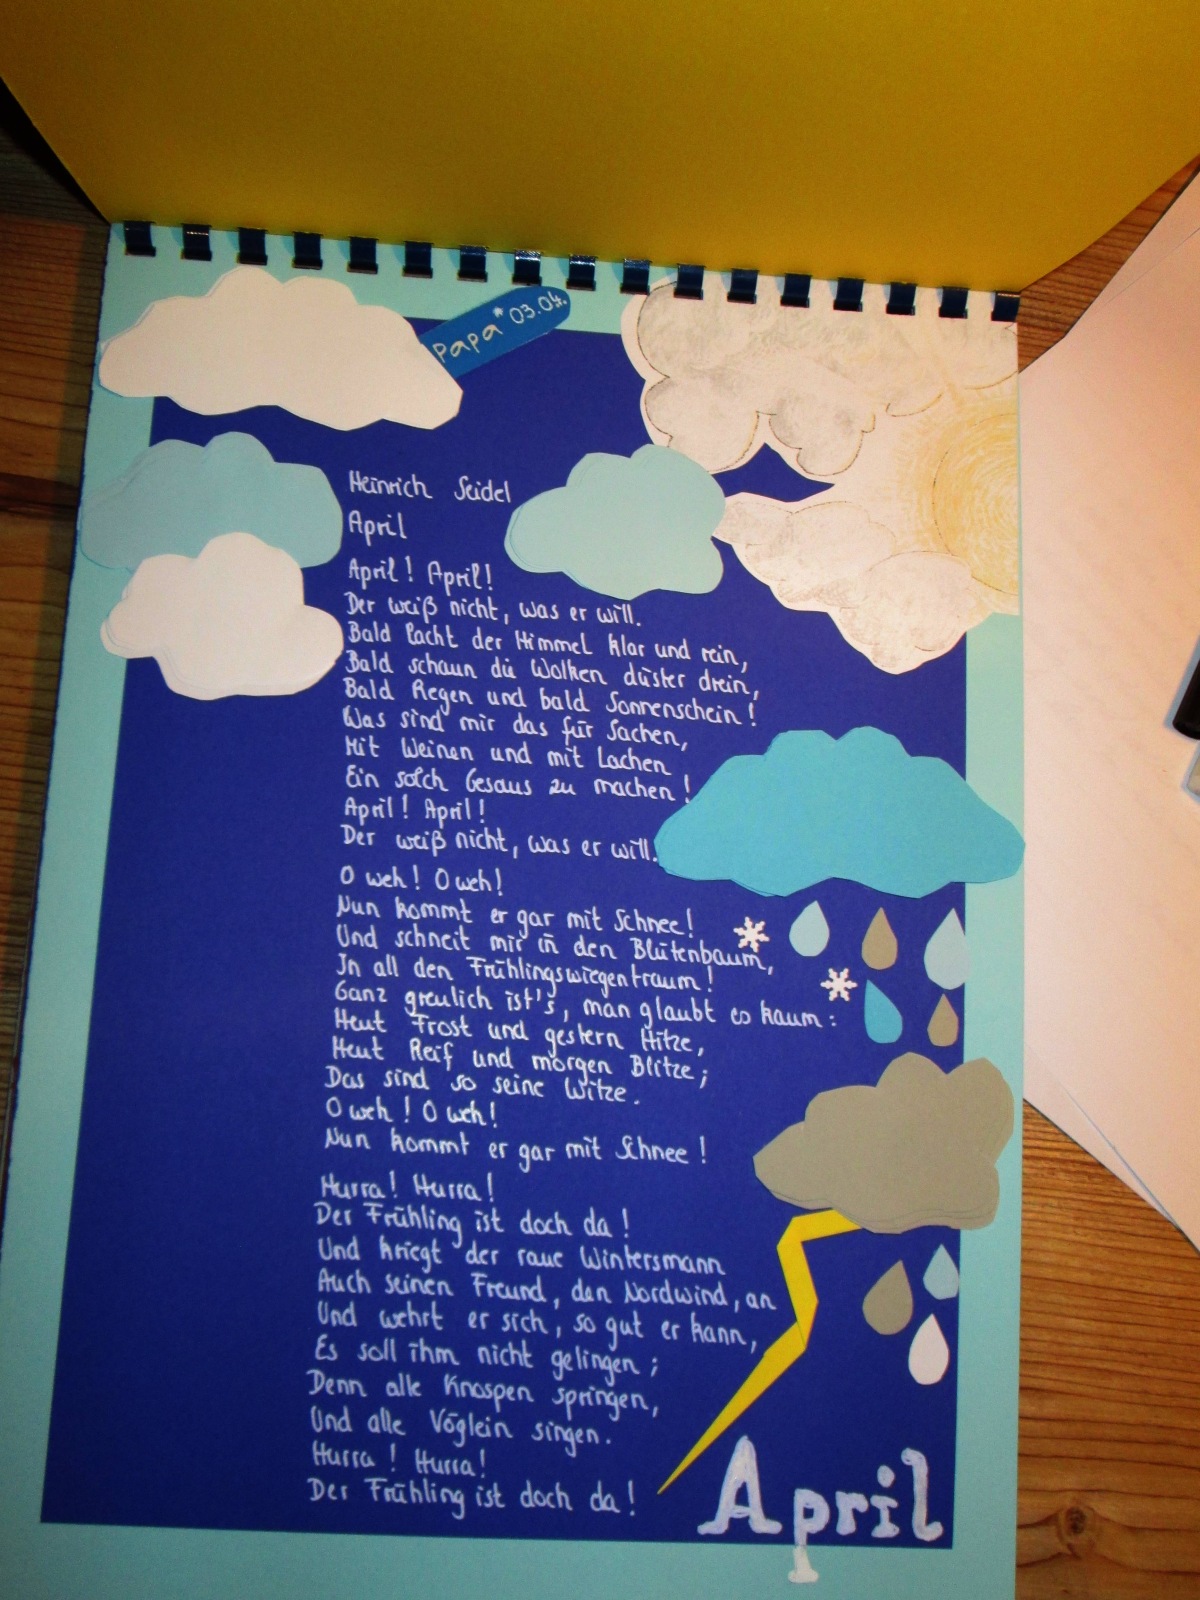 Papa * 03.04.
Heinrich Seidel
April
April! April!
Der weiß nicht, was er will.
Bald lacht der Himmel klar und rein,
Bald schaun die Wolken düster drein,
Bald Regen und bald Sonnenschein!
Was sind mir das für Sachen,
Mit Weinen und mit Lachen
Ein solch Gesaus zu machen!
April! April!
Der weiß nicht, was er will.
O weh! O weh!
Nun kommt er gar mit Schnee!
Und schneit mir in den Blütenbaum,
In all den Frühlingswiegentraum!
Ganz greulich ist's, man glaubt es kaum:
Heut Frost und gestern Hitze,
Heut Reif und morgen Blitze;
Das sind so seine Witze.
O weh! O weh!
Nun kommt er gar mit Schnee!
Hurra! Hurra!
Der Frühling ist doch da!
Und kriegt der raue Wintersmann
Auch seinen Freund, den Nordwind, an
Und wehrt er sich, so gut er kann,
Es soll ihm nicht gelingen;
Denn alle Knospen springen,
Und alle Vöglein singen.
Hurra! Hurra!
Der Frühling ist doch da!
April